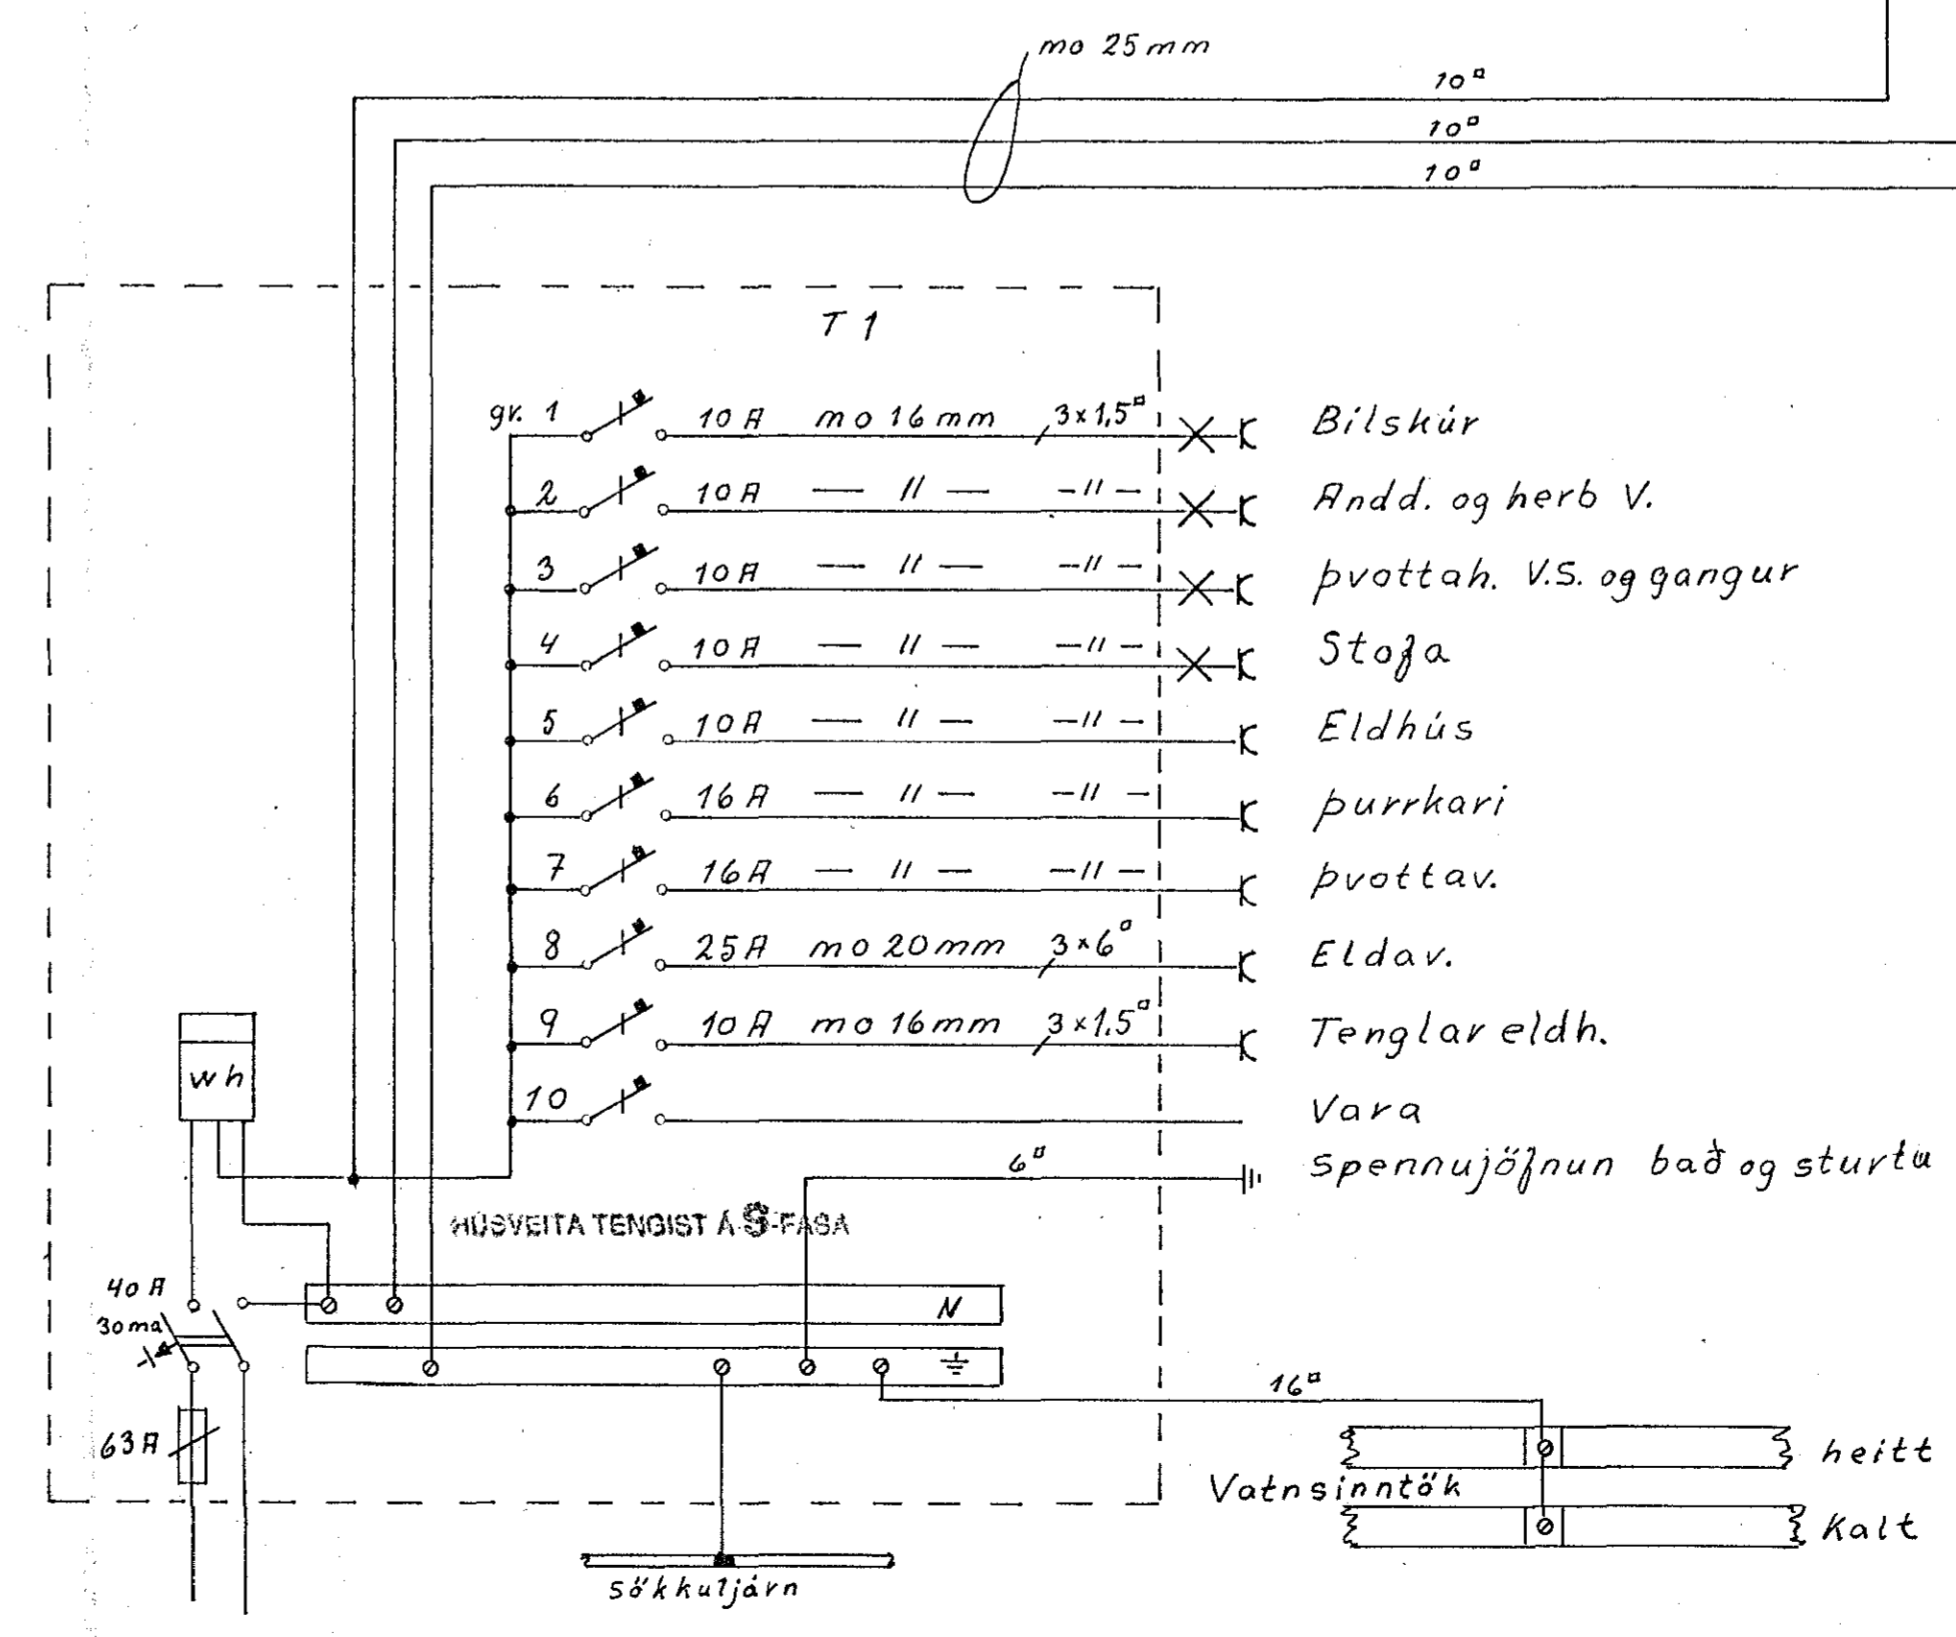 mo 25 mm
10▫
10▫
10▫
T 1
gr. 1 10 A mo 16 mm 3x1,5▫ Bílskúr
2 10 A — // — -//- Andd. og herb V.
3 10 A — // — -//- Þvottah. V.S. og gangur
4 10 A — // — -//- Stofa
5 10 A — // — -//- Eldhús
6 16 A — // — -//- Þurrkari
7 16 A — // — -//- Þvottav.
8 25 A mo 20 mm 3x6▫ Eldav.
9 10 A mo 16 mm 3x1.5▫ Tenglar eldh.
wh
10 Vara
6▫ Spennujöfnun bað og sturta
HÚSVEITA TENGIST Á S-FASA
40 A
30 ma
N
16▫
63 A
heitt
Vatnsinntök
Kalt
Sökkuljárn